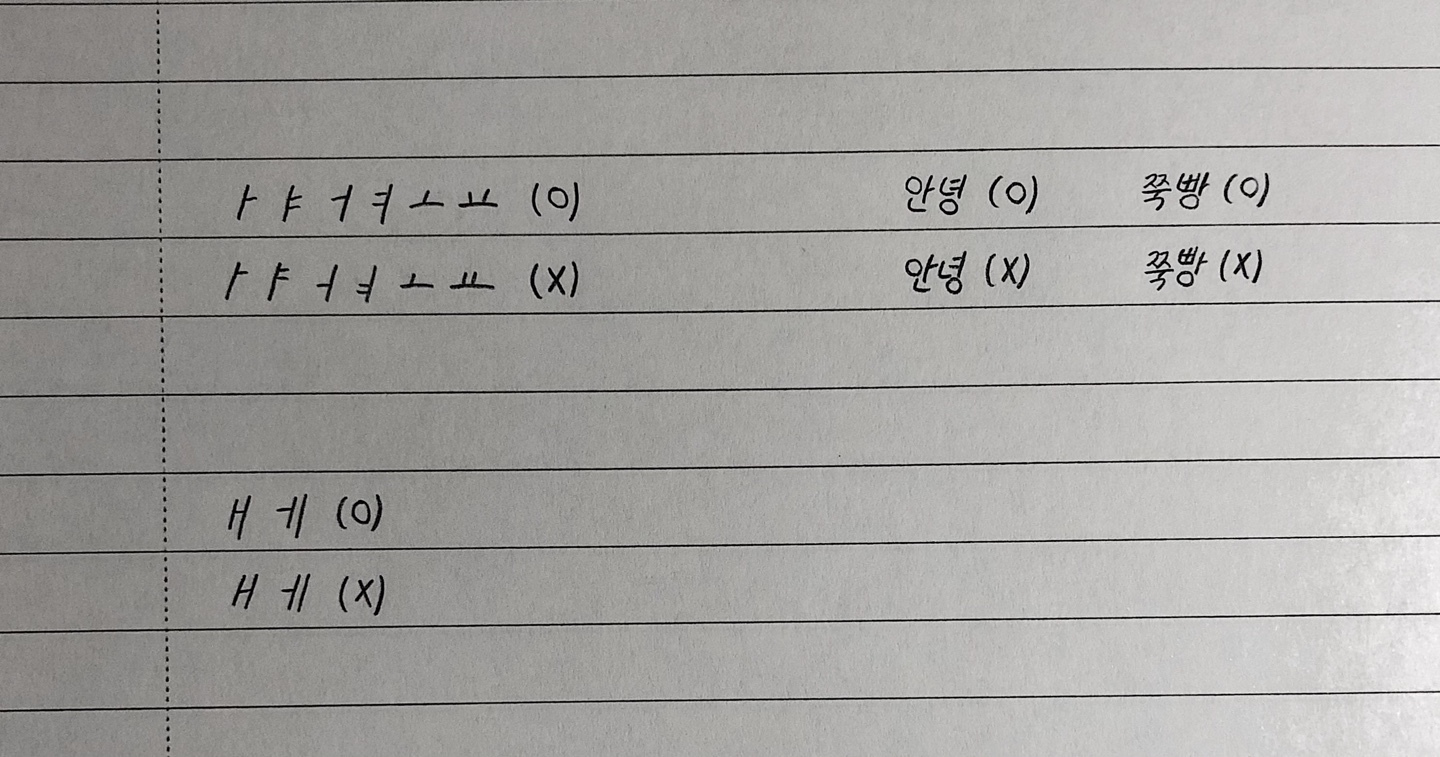 ㅏ ㅑ ㅓ ㅕ ㅗ ㅛ (O) 안녕 (O) 쭉빵 (O)
ㅏ ㅑ ㅓ ㅕ ㅗ ㅛ (X) 안녕 (X) 쭉빵 (X)
ㅐ ㅔ (O)
ㅐ ㅔ (X)